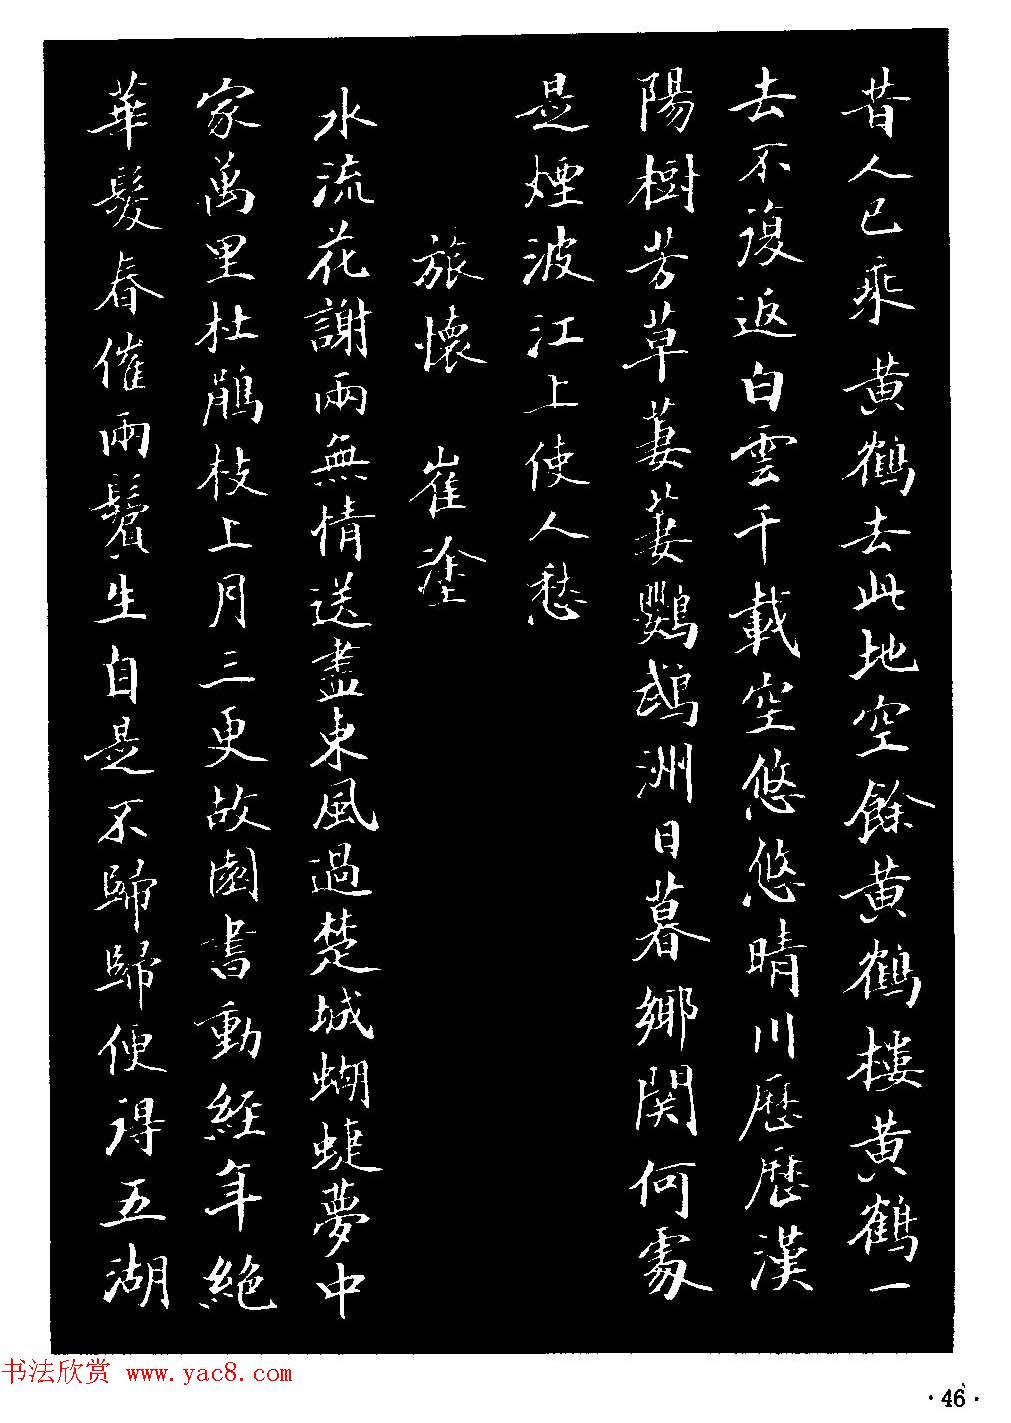 昔人已乘黄鶴去此地空餘黄鶴樓黄鶴一
去不復返白雲千載空悠悠晴川歷歷漢
陽樹芳草萋萋鸚鵡洲日暮鄉関何處
是煙波江上使人愁
旅懷 崔塗
水流花謝兩無情送盡東風過楚城蝴蝶夢中
家萬里杜鵑枝上月三更故園書動經年絶
華髮春催兩鬢生自是不歸歸便得五湖
书法欣赏 www.yac8.com
·46·